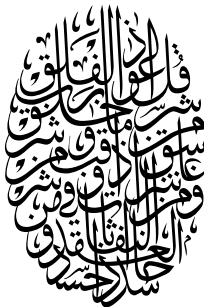 قل أعوذ برب الفلق
من شر ما خلق
ومن شر غاسق إذا وقب
ومن شر النفاثات في العقد
ومن شر حاسد إذا حسد